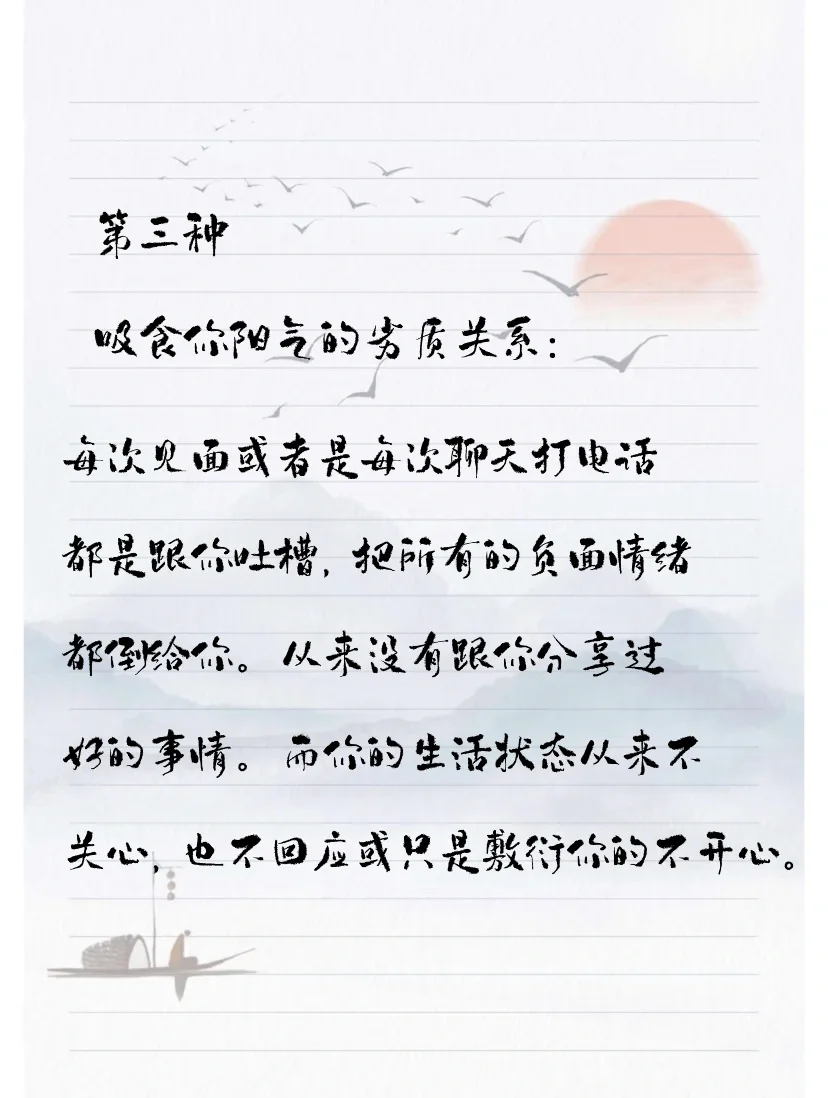 第三种
吸食你阳气的劣质关系：
每次见面或者是每次聊天打电话
都是跟你吐槽，把所有的负面情绪
都倒给你。从来没有跟你分享过
好的事情。而你的生活状态从来不
关心，也不回应或只是敷衍你的不开心。